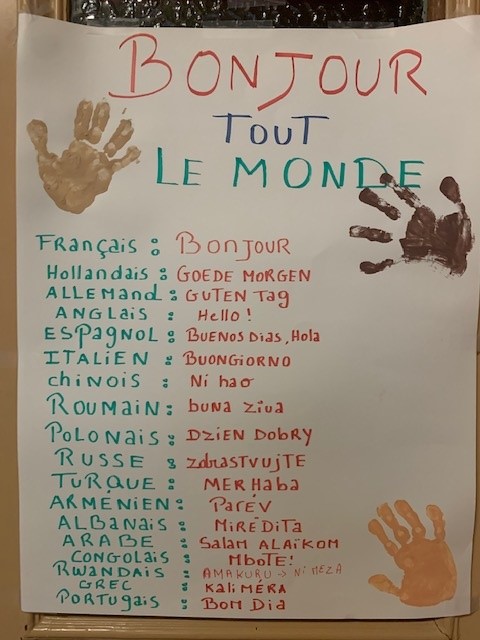 BONJOUR
TOUT
LE MONDE
Français : BONJOUR
Hollandais : GOEDE MORGEN
ALLEMAnd : GUTEN Tag
ANGLAIS : Hello !
ESPAGNOL : BUENOS Dias, Hola
ITALIEN : BUONGIORNO
chinois : Ni hao
ROUMAIN : buna ziua
POLONAIS : DZIEN DOBRY
RUSSE : zdrastvujTE
TURQUE : MERHaba
ARMÉNIEN : Parév
ALBANAIS : MIREDITA
ARABE : Salam ALAÏKOM
CONGOLAIS : MboTE!
RWANDAIS : AMAKURU -> Ni MEZA
GREC : KaliMÉRA
PORTUgais : BOM Dia